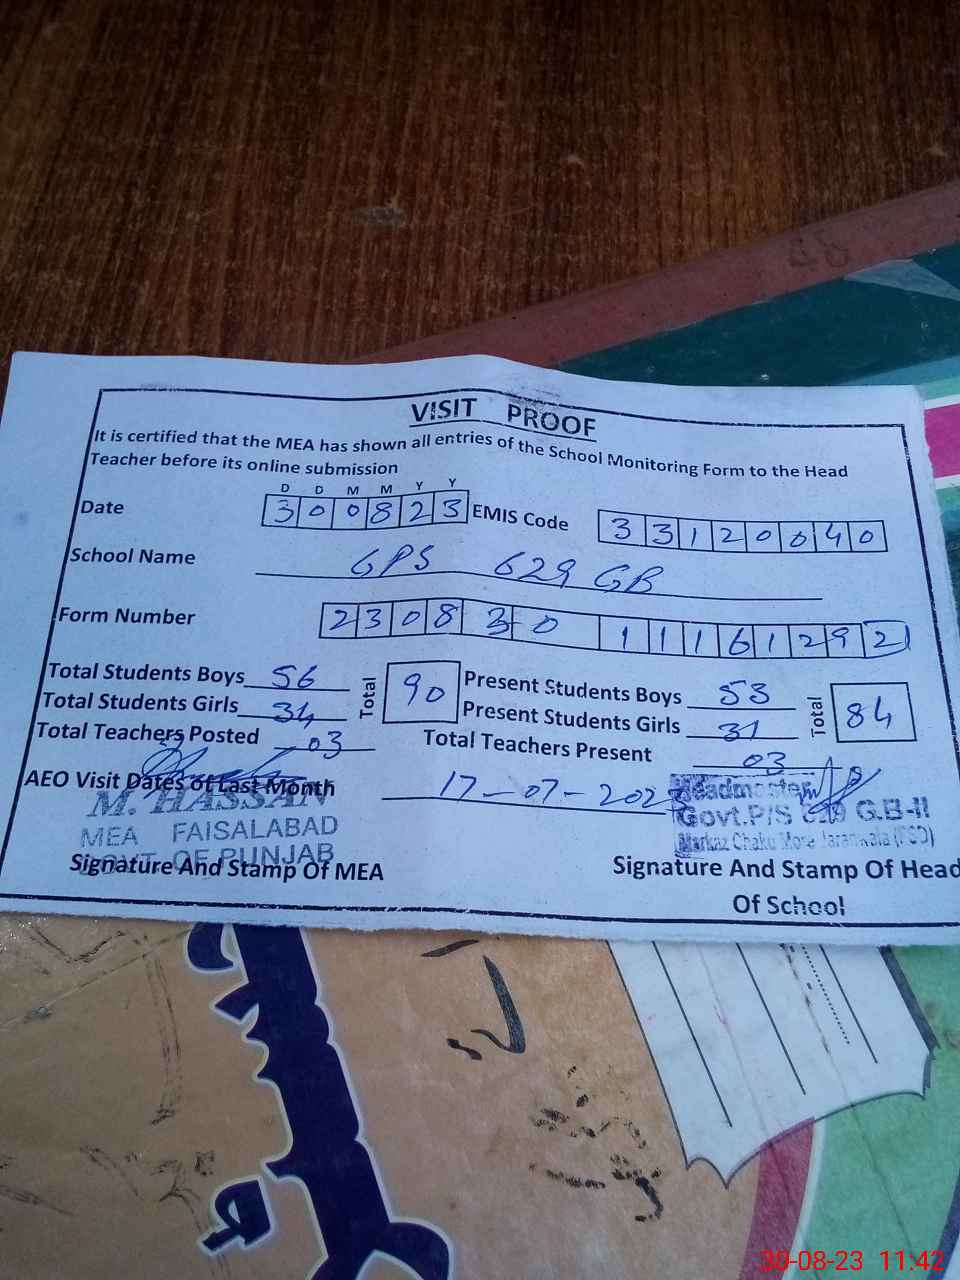 VISIT PROOF
It is certified that the MEA has shown all entries of the School Monitoring Form to the Head
Teacher before its online submission
D D M M Y Y
Date 300823 EMIS Code 33120040
School Name GPS 629 GB
Form Number 230830 11161292
Total Students Boys 56 Total 90 Present Students Boys 53 Total 84
Total Students Girls 34 Present Students Girls 31
Total Teachers Posted 03 Total Teachers Present 03
AEO Visit Dates of Last Month 17-07-2023
M. HASSAN
MEA FAISALABAD
GOVT. OF PUNJAB
Headmaster
Govt.P/S 629 G.B-II
Markaz Chaku More Jaranwala (FSD)
Signature And Stamp Of MEA
Signature And Stamp Of Head
Of School
30-08-23 11:42